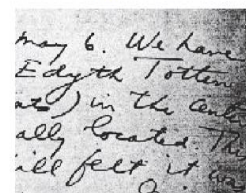 may 6. We have
Edyth Totten
in the cente
ally located. Th
ill felt it wa